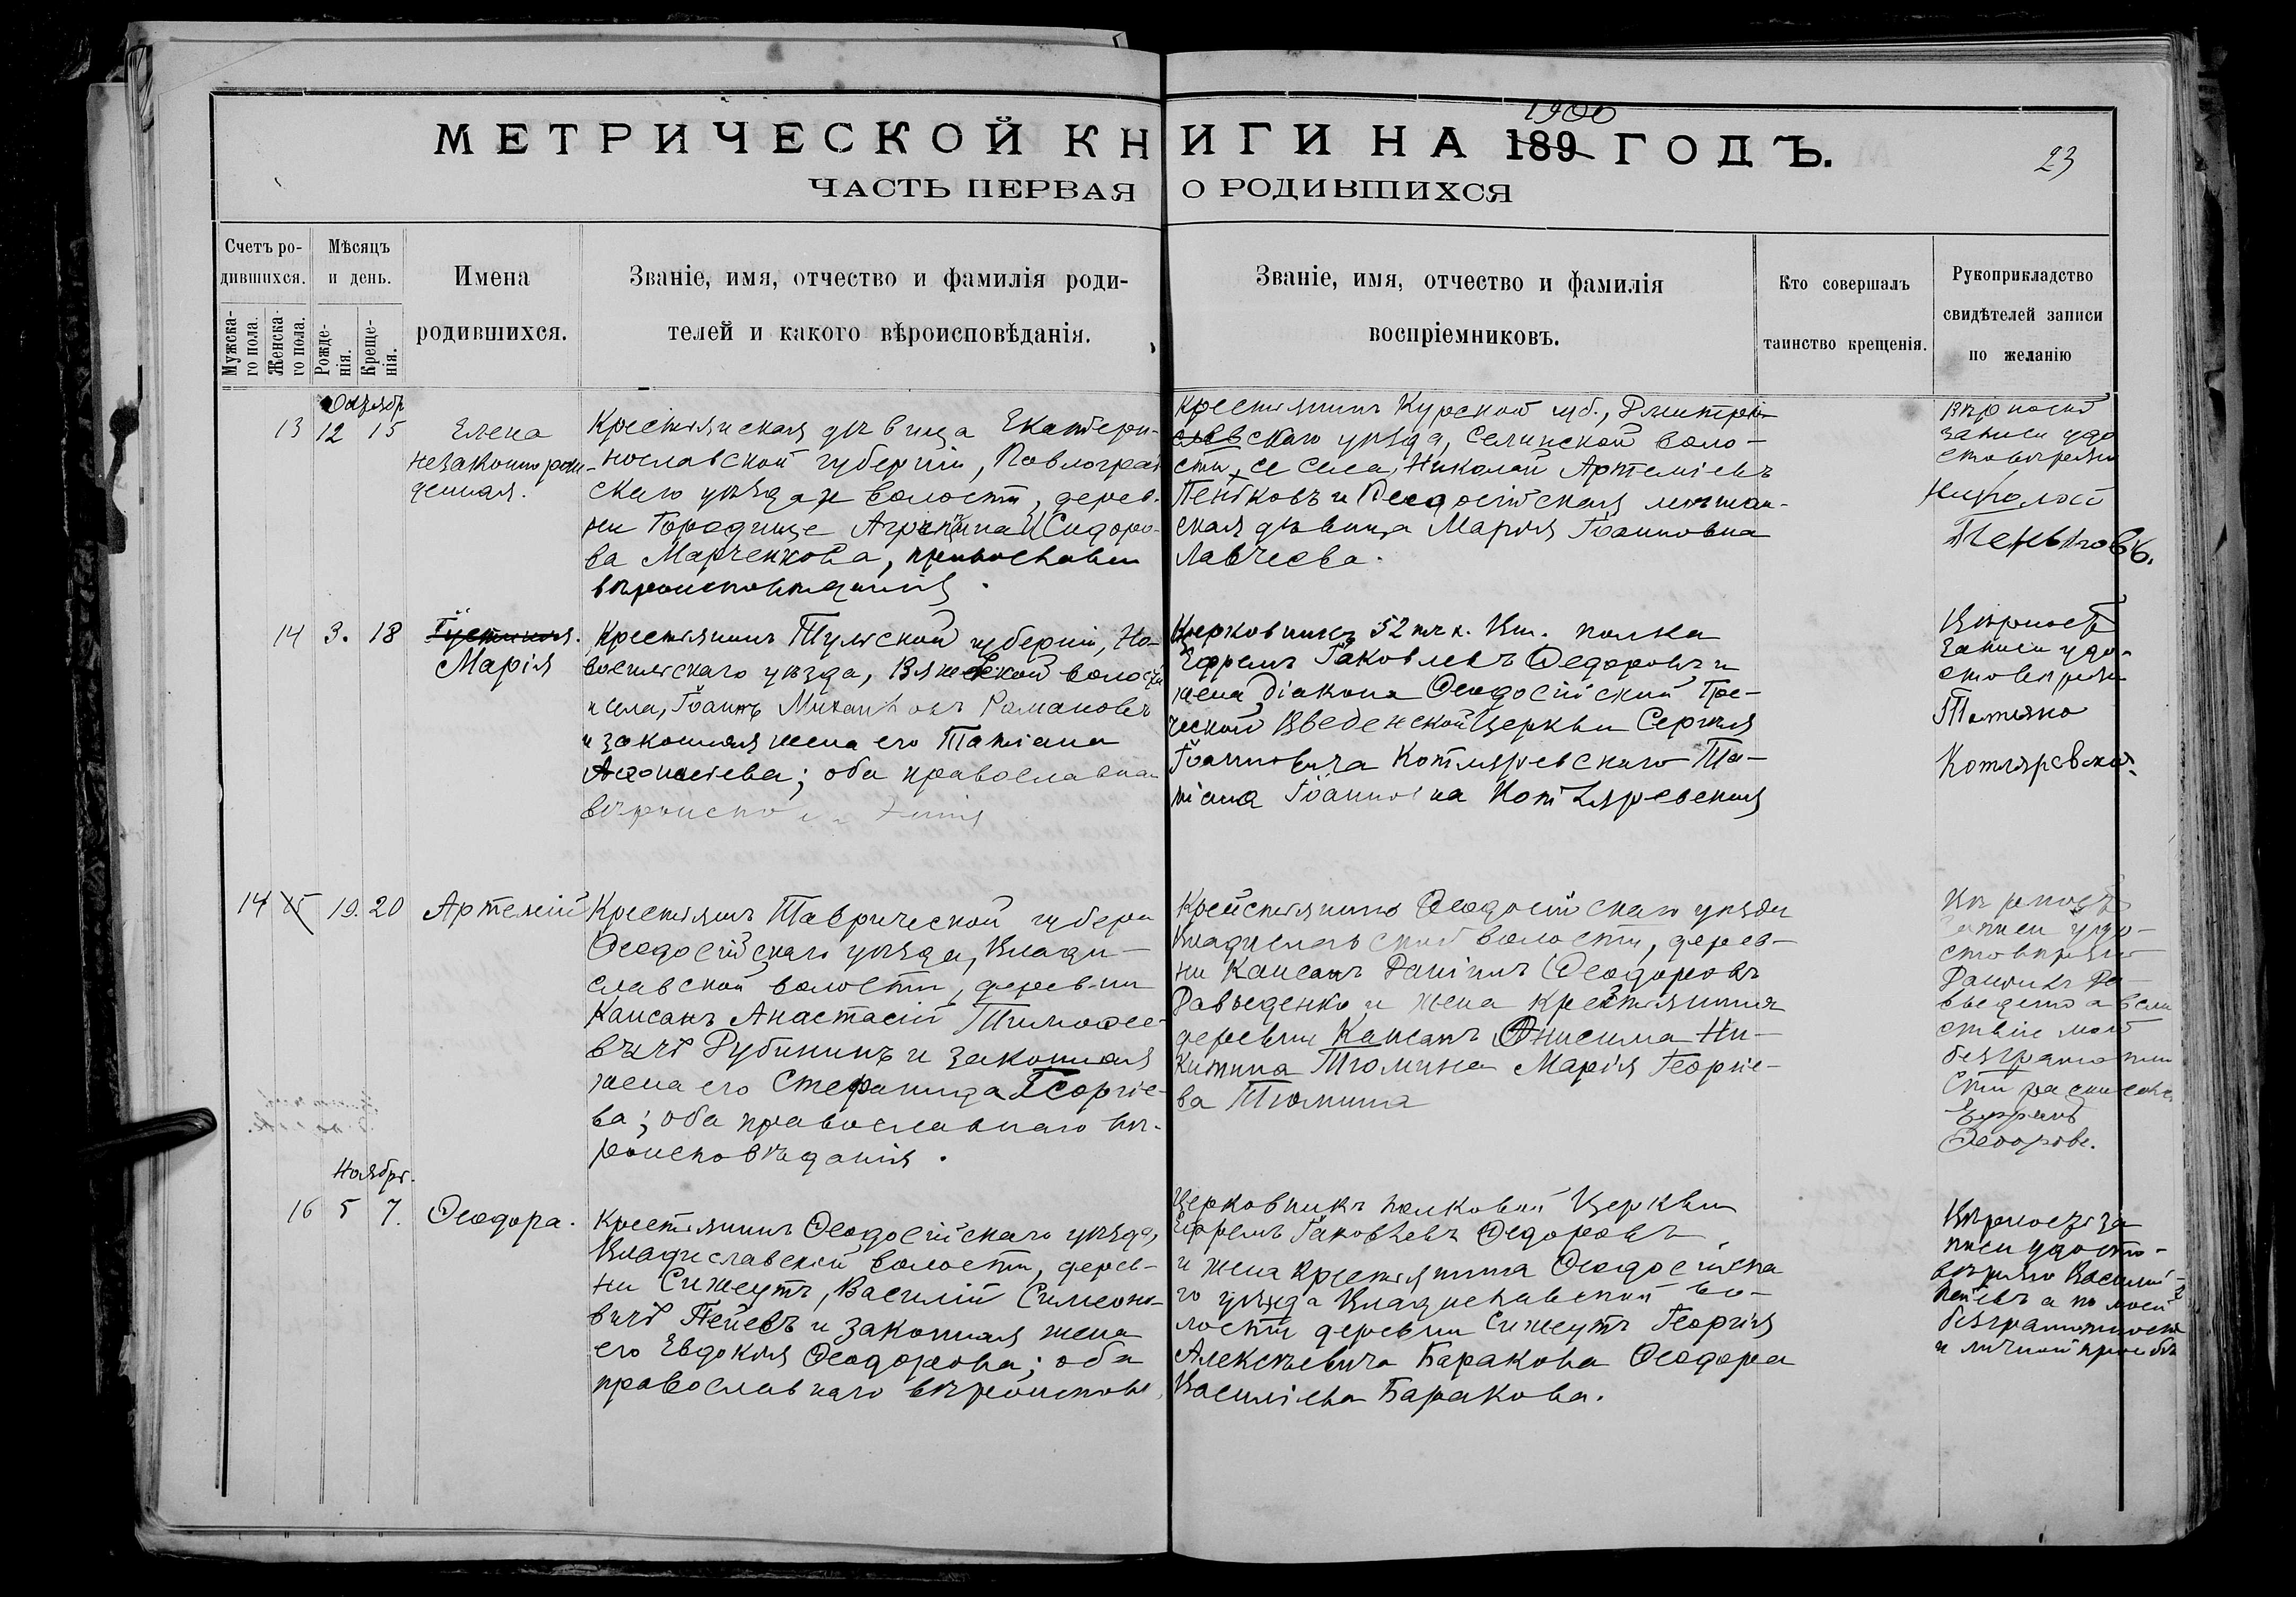 1900
МЕТРИЧЕСКОЙ КНИГИ НА 189 ГОДЪ.
23
ЧАСТЬ ПЕРВАЯ О РОДИВШИХСЯ
Счетъ ро-
дившихся.
Мужска-
го пола.
Женска-
го пола.
Мѣсяцъ
и день.
Рожде-
нія.
Креще-
нія.
Имена
родившихся.
Званіе, имя, отчество и фамилія роди-
телей и какого вѣроисповѣданія.
Званіе, имя, отчество и фамилія
воспріемниковъ.
Кто совершалъ
таинство крещенія.
Рукоприкладство
свидѣтелей записи
по желанію
Октябр
13 12 15
Елена
незаконнорож-
денная.
Крестьянская дѣвица Екатери-
нославской губерніи, Павлоград
скаго уѣзда и волости, дерев-
ни Городище Агрипина Сидоро-
ва Марченкова, православн
вѣроисповѣданія.
Крестьянинъ Курской губ., Дмитрі-
евскаго уѣзда, Селинской воло-
сти, села, Николай Артеміевъ
Пеньковъ и Ѳеодосійская мѣщан-
ская дѣвица Марія Іоанновна
Лавчіева.
Вѣрность
записи удо
стовѣряю
Николай
Пеньковъ.
14 3. 18
Марія
Крестьянинъ Тульской губерніи, Но-
восильскаго уѣзда, Вяжевской волости
и села, Іоаннъ Михаиловъ Романовъ
и законная жена его Татіана
Аѳонасіева; оба православна
вѣроиспо
Церковникъ 52 пѣх. Вил. полка
Ефремъ Іаковлевъ Ѳедоровъ и
жена діакона Ѳеодосійской Гре-
ческой Введенской Церкви Сергія
Іоанновича Котляревскаго Та-
тіана Іоанновна Котляревская
Вѣрность
записи удо-
стовѣряю
Татьяна
Котляревская.
14 15 19. 20
Артемій
Крестьянинъ Таврической губерн
Ѳеодосійскаго уѣзда, Влади-
славской волости, деревни
Капсанъ Анастасій Тимоѳее-
вичъ Рубининъ и законная
жена его Стефанида Георгіе-
ва; оба православнаго вѣ-
роисповѣданія.
Крестьянинъ Ѳеодосійскаго уѣзда
Владиславской волости, дерев-
ни Капсанъ Даніилъ Ѳеодоровъ
Давыденко и жена крестьянина
деревни Капсанъ Онисима Ни-
китина Тюмина Марія Георгіе-
ва Тюмина
Вѣрность
записи удо-
стовѣряю
Даніилъ Да-
выденко а вслѣ
ствіе моей
безграмотно
сти росписался
Ефремъ
Ѳеодоровъ.
Ноябрь.
16 5 7.
Ѳеодора.
Крестьянинъ Ѳеодосійскаго уѣзда,
Владиславской волости, дерев-
ни Сижеутъ, Василій Симеоно-
вичъ Пейевъ и законная жена
его Евдокія Ѳеодорова; оба
православнаго вѣроисповѣ
Церковникъ полковой Церкви
Ефремъ Іаковлевъ Ѳедоровъ
и жена крестьянина Ѳеодосійска
го уѣзда Владиславской во-
лости деревни Сижеутъ Георгія
Алексѣевича Баракова Ѳеодора
Василіева Баракова.
Вѣрность за
писи удосто-
вѣряю Василій
Пейевъ а по моей
безграмотности
и личной просьбѣ